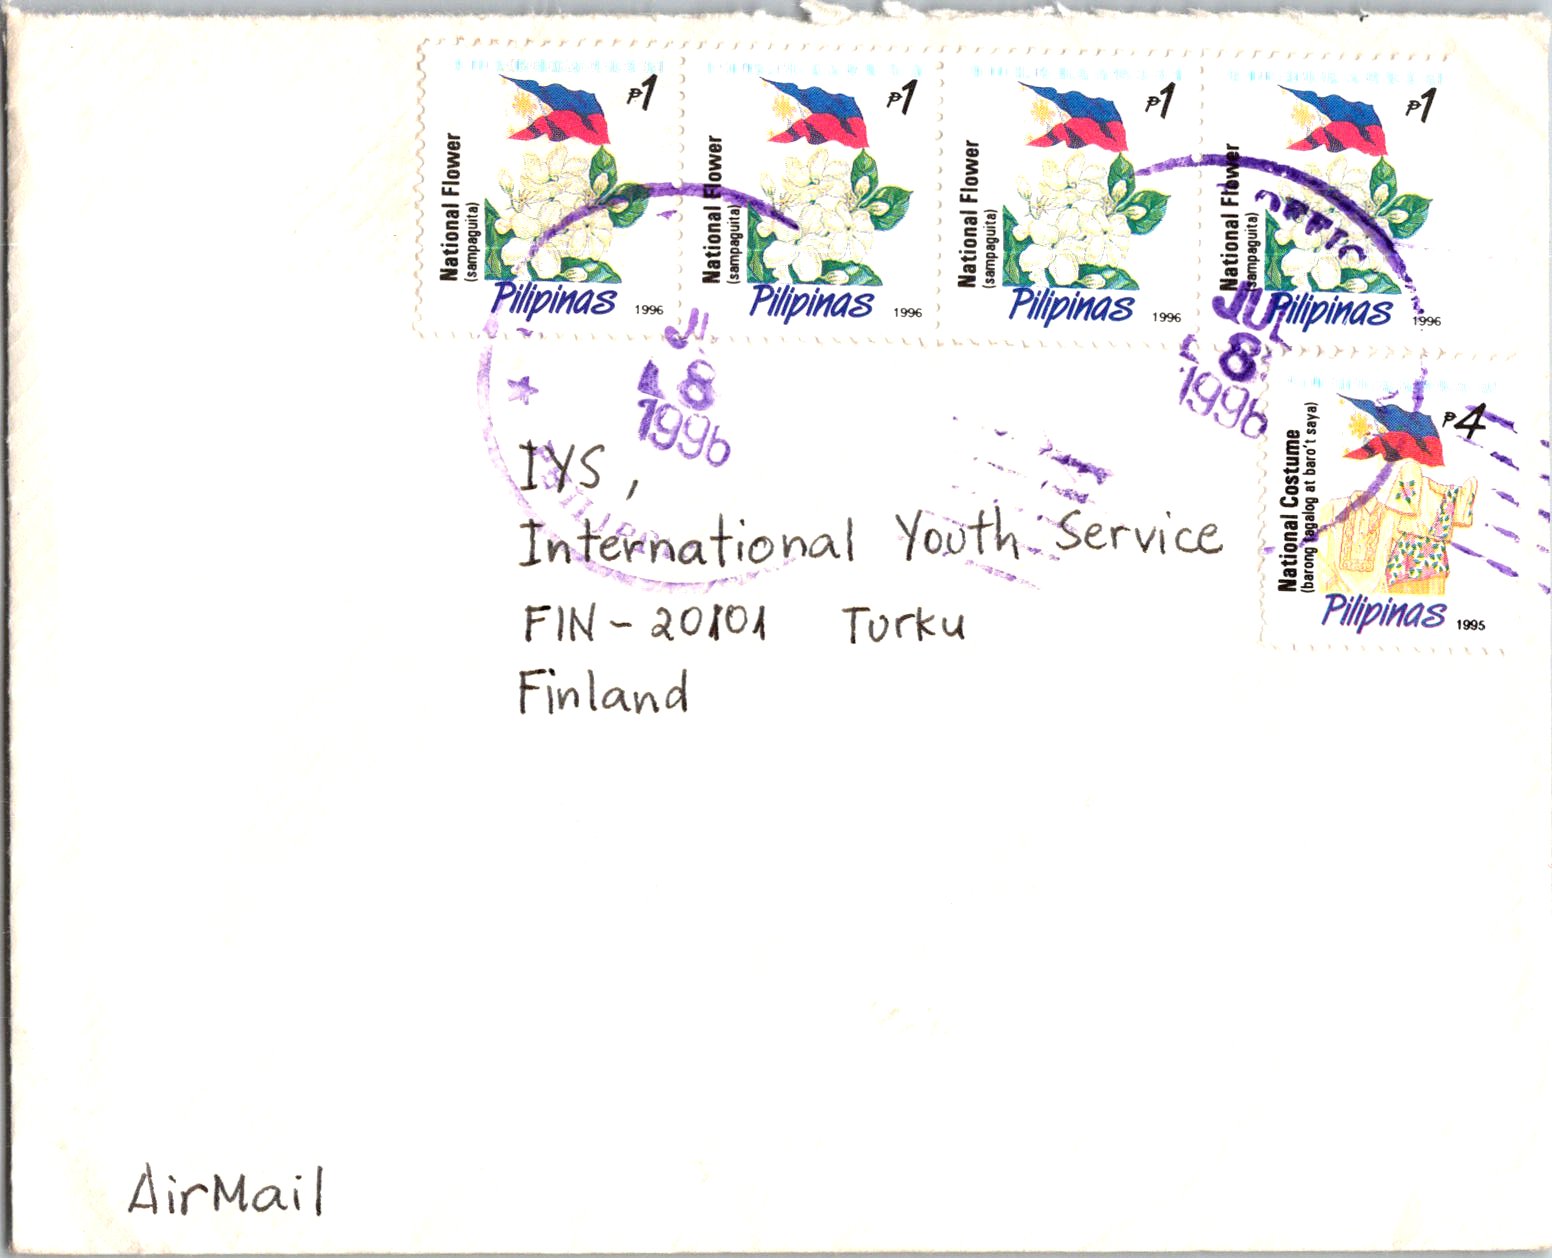 ₱1
National Flower
(sampaguita)
Pilipinas 1996
₱1
National Flower
(sampaguita)
Pilipinas 1996
₱1
National Flower
(sampaguita)
Pilipinas 1996
₱1
National Flower
(sampaguita)
Pilipinas 1996
8
1996
JUL
8
1996
₱4
National Costume
(barong tagalog at baro't saya)
Pilipinas 1995
IYS,
International Youth Service
FIN-20101 Turku
Finland
AirMail